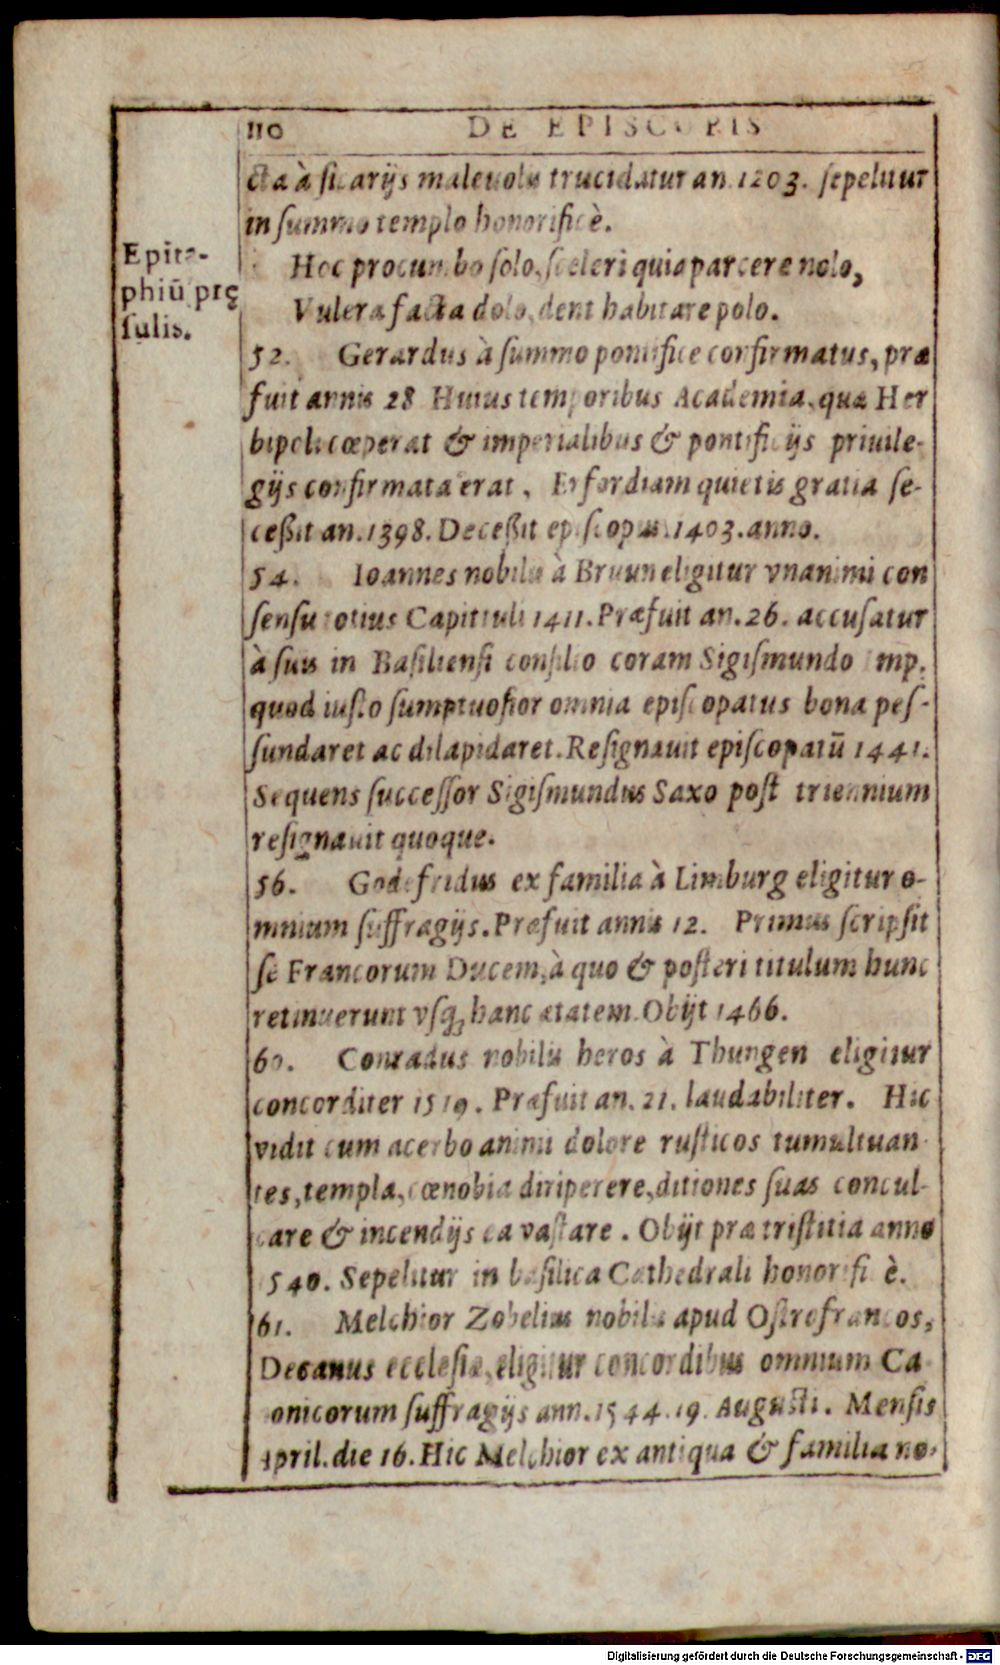 110 DE EPISCOPIS
cta à sicarijs maleuolis trucidatur an. 1203. sepelitur
in summo templo honorificè.
Epita-
phiũ prę
sulis.
Hoc procumbo solo, sceleri quia parcere nolo,
Vulera facta dolo, dent habitare polo.
52. Gerardus à summo pontifice confirmatus, præ
fuit annis 28 Huius temporibus Academia, quæ Her
bipoli cœperat & imperialibus & pontificijs priuile-
gijs confirmata erat, Erfordiam quietis gratia se-
ceßit an. 1398. Deceßit episcopus. 1403. anno.
54. Ioannes nobilis à Bruun eligitur vnanimi con
sensu totius Capittuli 1411. Præfuit an. 26. accusatur
à suis in Basiliensi consilio coram Sigismundo Imp.
quod iusto sumptuosior omnia episcopatus bona pes-
sundaret ac dilapidaret. Resignauit episcopatũ 1441.
Sequens successor Sigismundus Saxo post triennium
resignauit quoque.
56. Godefridus ex familia à Limburg eligitur o-
mnium suffragijs. Præfuit annis 12. Primus scripsit
se Francorum Ducem, à quo & posteri titulum hunc
retinuerunt vsq; hanc ætatem. Obijt 1466.
60. Conradus nobilis heros à Thungen eligitur
concorditer 1519. Præfuit an. 21. laudabiliter. Hic
vidit cum acerbo animi dolore rusticos tumultuan-
tes, templa, cœnobia diriperere, ditiones suas concul-
care & incendijs ea vastare. Obijt præ tristitia anno
1540. Sepelitur in basilica Cathedrali honorificè.
61. Melchior Zobelius nobilis apud Ostrofrancos,
Decanus ecclesiæ, eligitur concordibus omnium Ca
onicorum suffragijs ann. 1544. 19. Augusti. Mensis
April. die 16. Hic Melchior ex antiqua & familia no-
Digitalisierung gefördert durch die Deutsche Forschungsgemeinschaft - DFG